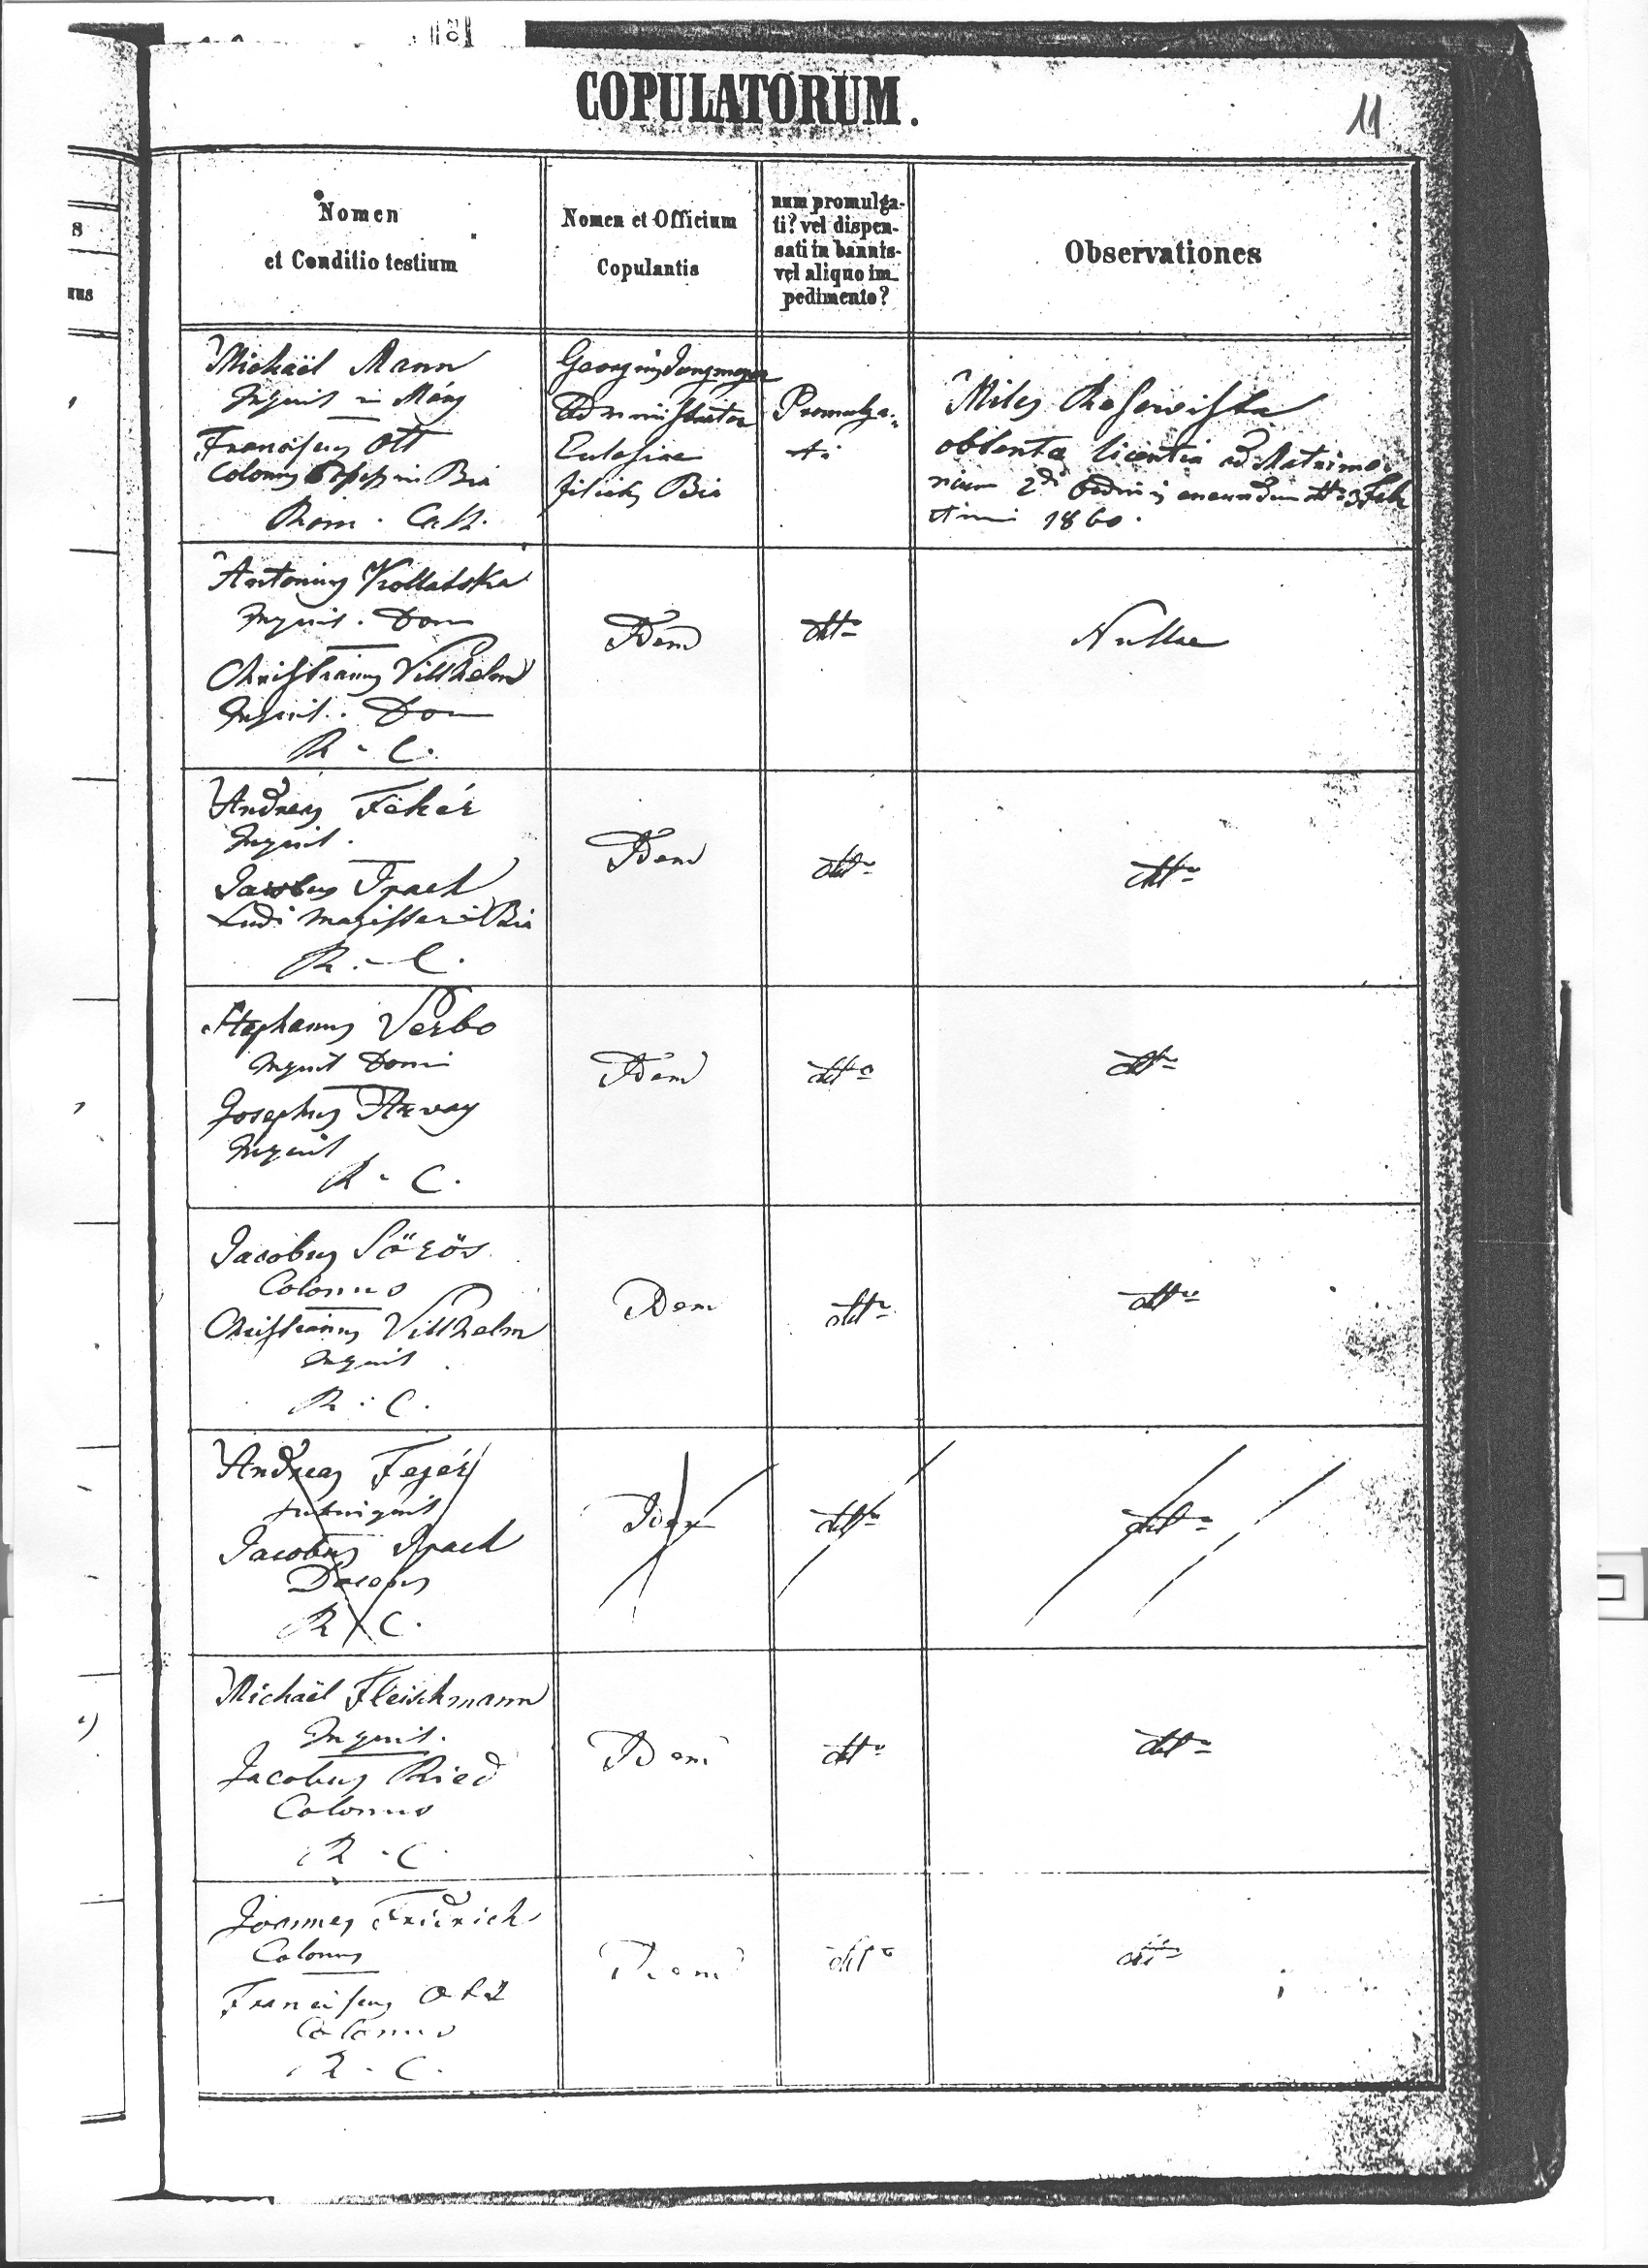 COPULATORUM.
11
Nomen
et Conditio testium
Nomen et Officium
Copulantis
num promulga-
ti? vel dispen-
sati in bannis-
vel aliquo im-
pedimento?
Observationes
s
nus
Michaël Mann
Inquil in Mány
Franciscus Ott
Colonus in Bia
Rom. Cath.
Georgius Jungmeyer
Administrator
Eclesiae
Bia
Promulga-
ti
Miles Reservista
obtenta licentia ad Matrimo-
nium 2di Ordinis
1860.
Antonius Kollatska
Inquil. Dom
Christianus Villhelm
Inquil. Dom
R. C.
Idem
dtto
Nullae
Andreas Fehér
Inquil.
Jacobus Ipach
Ludi Magister in Bia
R. C.
Idem
dtto
dtto
Stephanus Verbo
Inquil Domi
Josephus Arvay
Inquil
R. C.
Idem
dtto
dtto
Jacobus Sörös
Colonus
Christianus Villhelm
Inquil
R. C.
Idem
dtto
dtto
Andreas Fejér
subinquil
Jacobus Ipach
R. C.
Idem
dtto
dtto
Michaël Fleischmann
Inquil.
Jacobus Ried
Colonus
R. C.
Idem
dtto
dtto
Joannes Fridrich
Colonus
Franciscus Ott
Colonus
R. C.
Idem
dtto
dtto